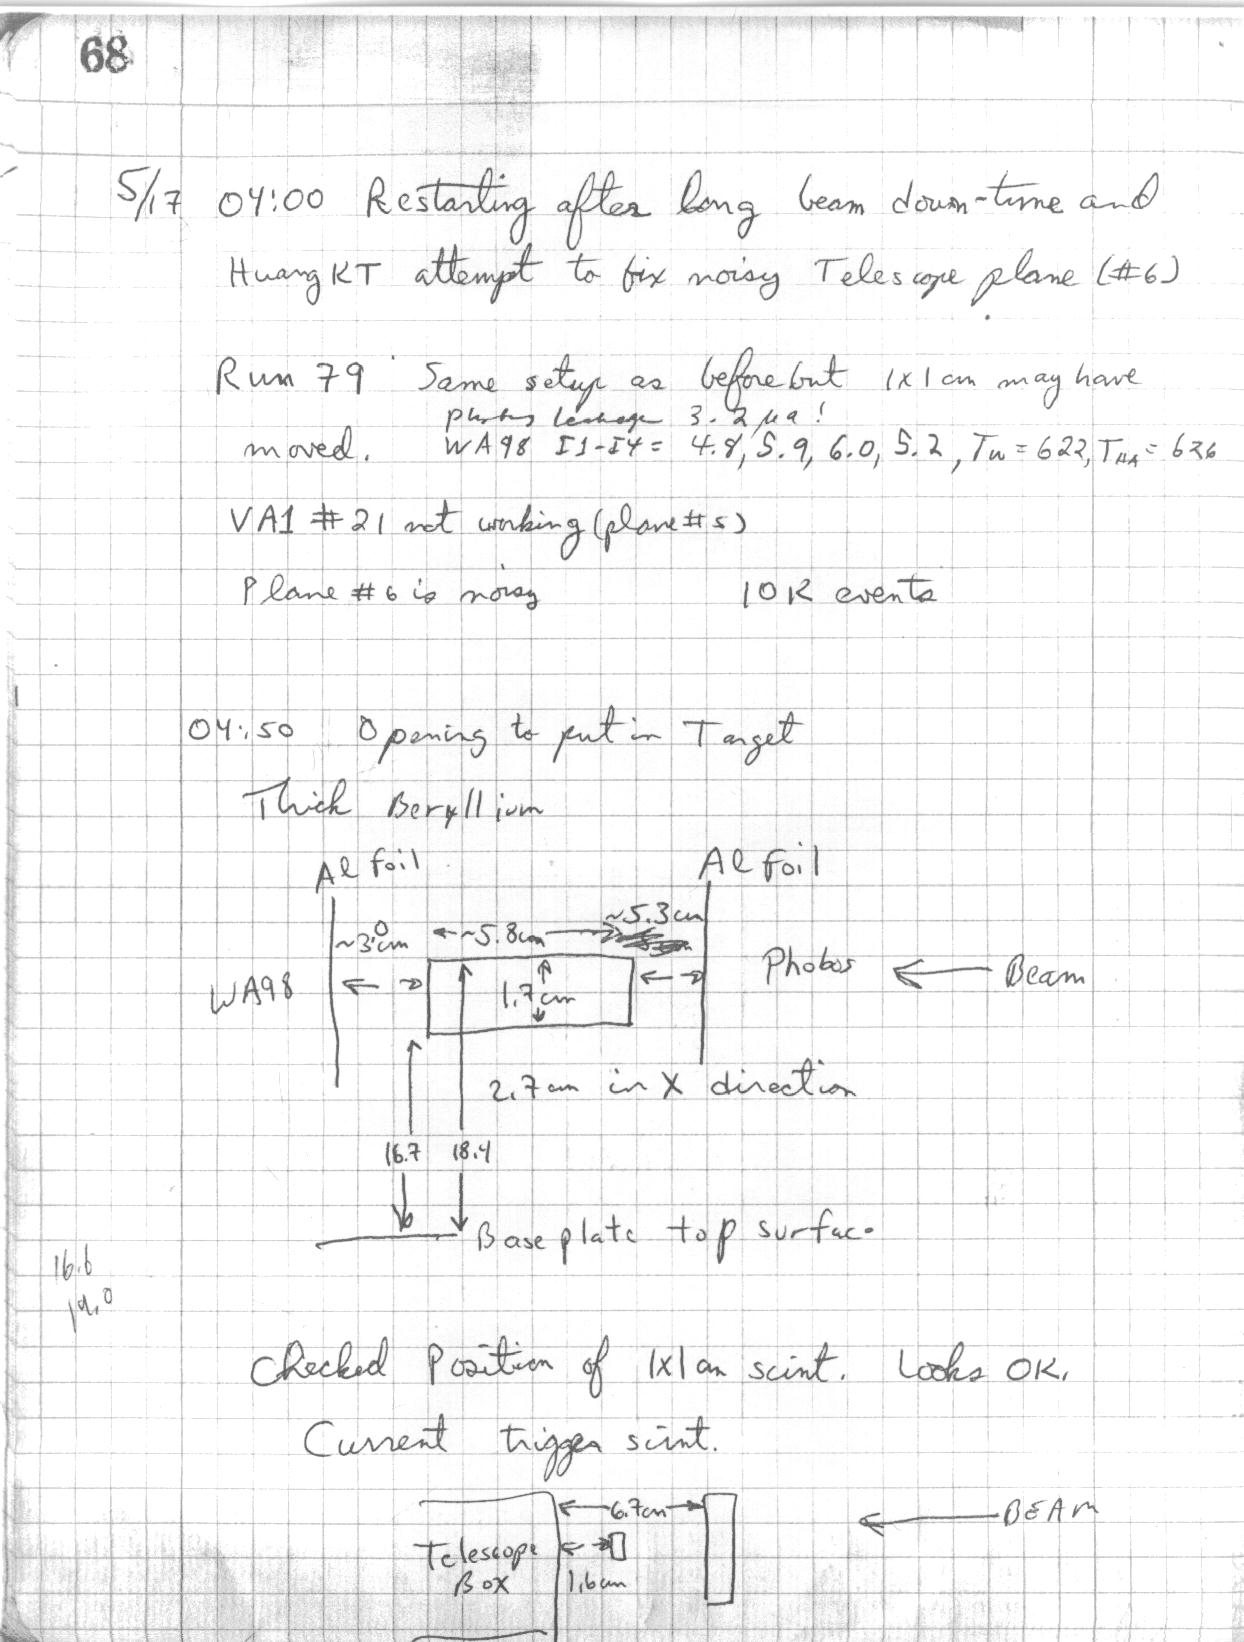 68
5/17 04:00 Restarting after long beam down-time and
Huang KT attempt to fix noisy Telescope plane (#6)
Run 79 Same setup as before but 1x1 cm may have
Phobos leakage 3.2 µa!
moved. WA98 I1-I4 = 4.8, 5.9, 6.0, 5.2, Tw = 622, = 626
VA1 #21 not working (plane #5)
Plane #6 is noisy 10K events
04:50 Opening to put in Target
Thick Beryllium
Al foil Al foil
~3.0cm ~5.8cm ~5.3cm
WA98 1.7cm Phobos Beam
2.7cm in X direction
16.7 18.4
Base plate top surface
16.6
Checked Position of 1x1 cm scint. Looks OK.
Current trigger scint.
6.7cm BEAM
Telescope
Box 1.6cm